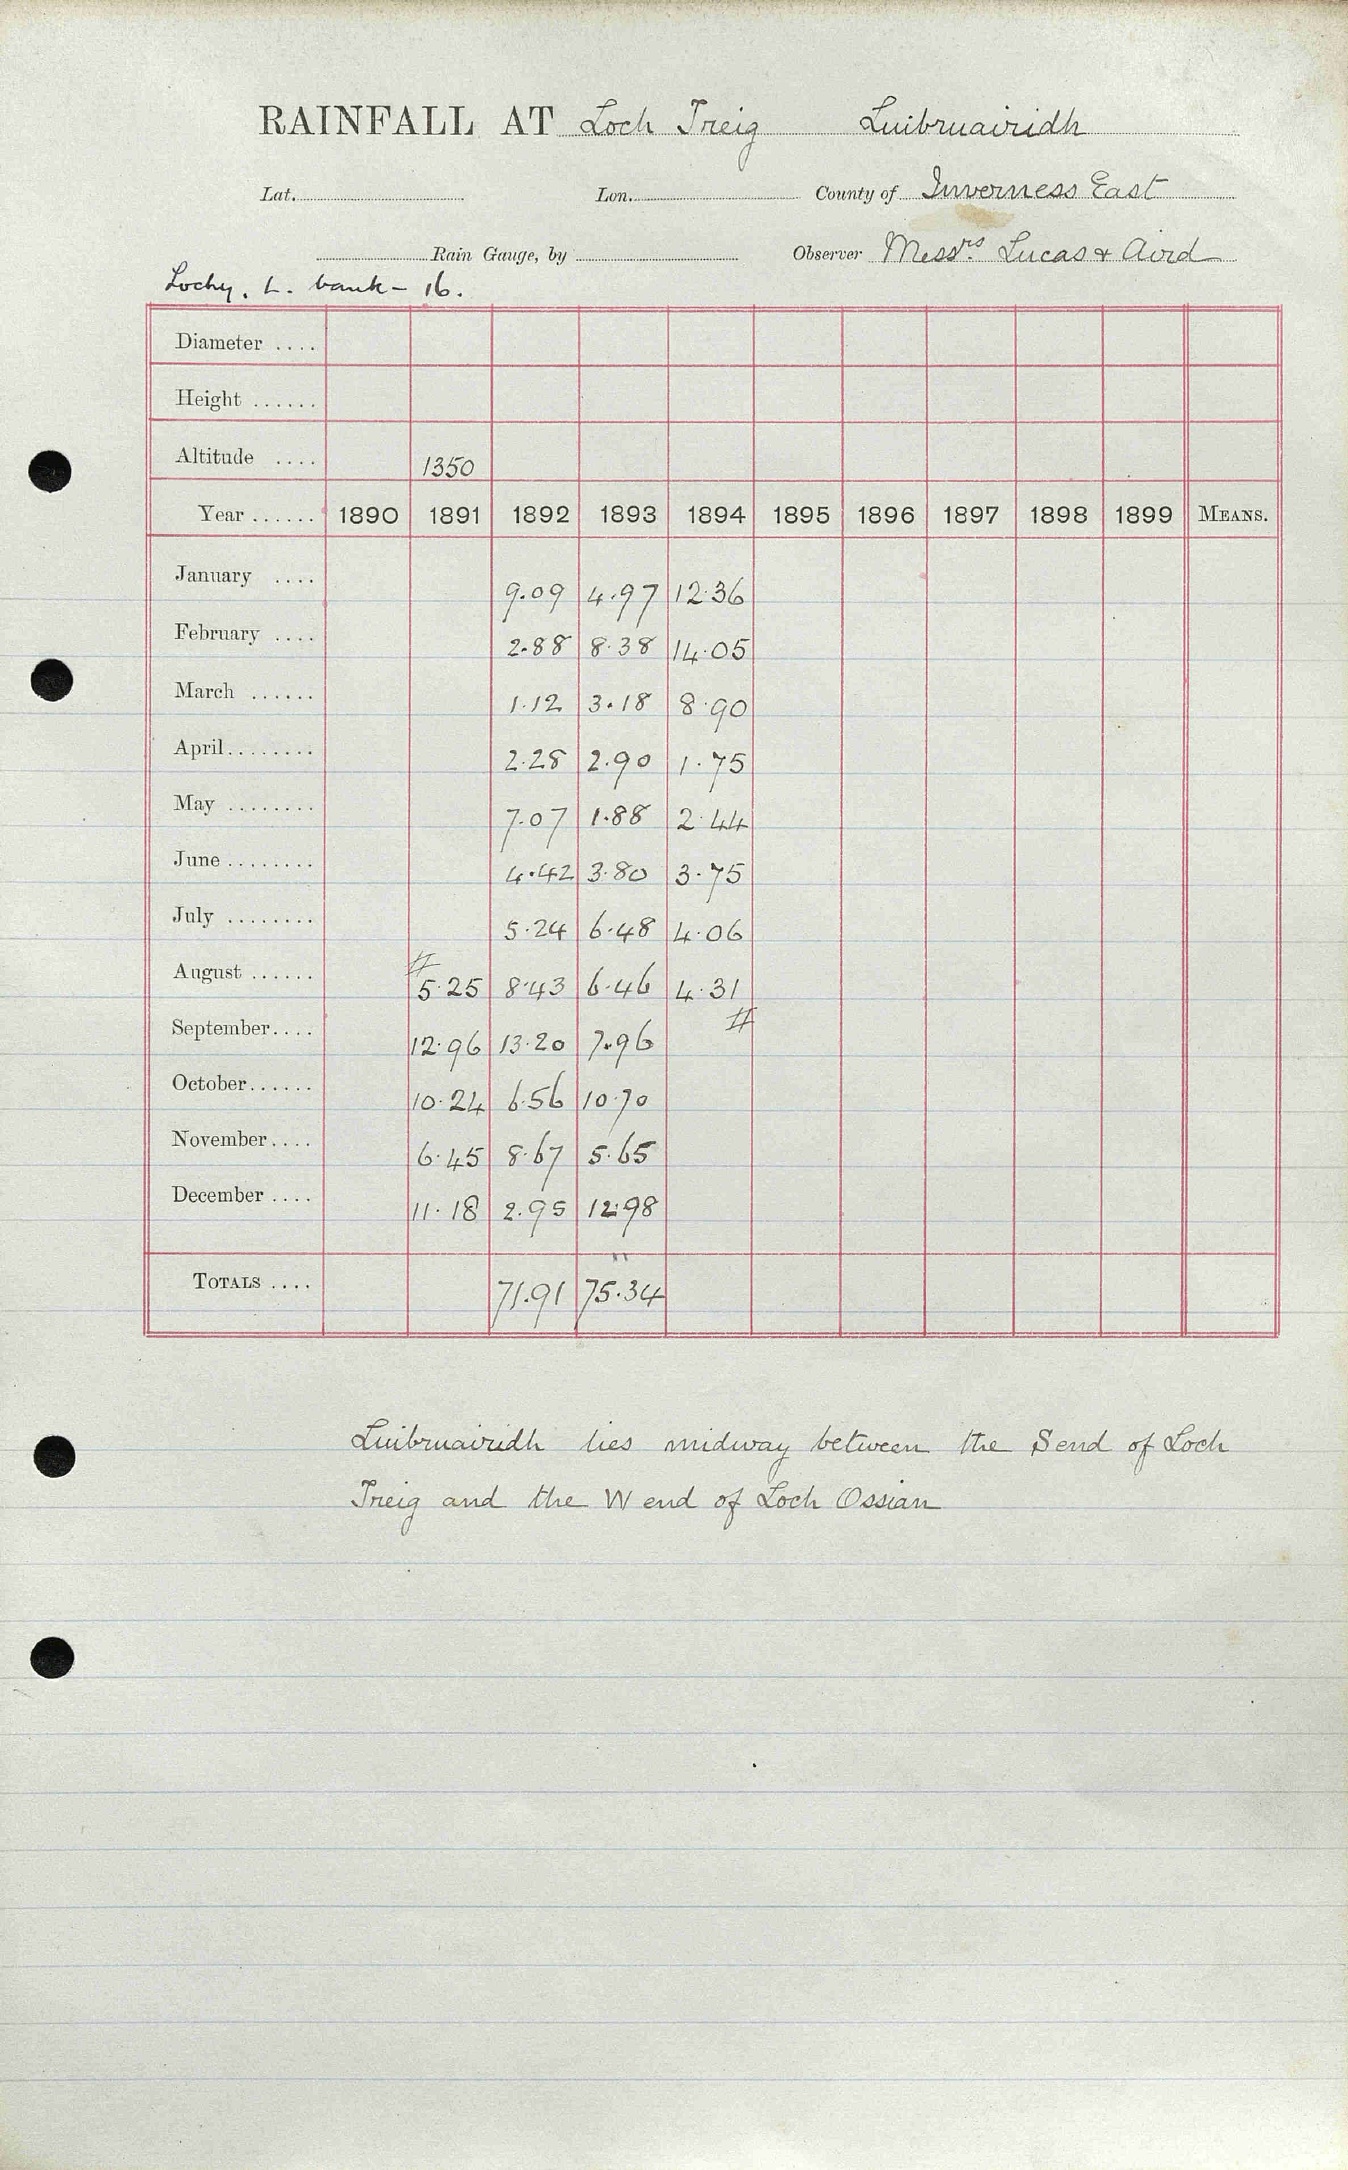 RAINFALL AT Loch Treig Luibruairidh
Lat. Lon. County of Inverness East
Rain Gauge, by Observer Messrs. Lucas & Aird
Lochy. L. bank - 16.
Diameter ....
Height ......
Altitude .... 1350
Year ...... 1890 1891 1892 1893 1894 1895 1896 1897 1898 1899 MEANS.
January .... 9.09 4.97 12.36
February .... 2.88 8.38 14.05
March ...... 1.12 3.18 8.90
April ........ 2.28 2.90 1.75
May ........ 7.07 1.88 2.44
June ........ 4.42 3.80 3.75
July ........ 5.24 6.48 4.06
August ...... # 5.25 8.43 6.46 4.31 #
September .... 12.96 13.20 7.96
October ...... 10.24 6.56 10.70
November .... 6.45 8.67 5.65
December .... 11.18 2.95 12.98
TOTALS .... 71.91 75.34
Luibruairidh lies midway between the S end of Loch
Treig and the W end of Loch Ossian